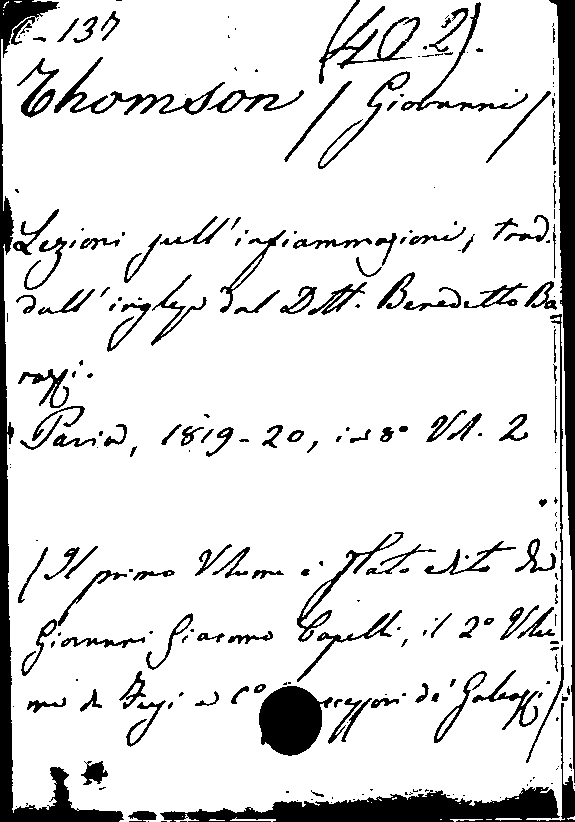 C-137 (402).
Thomson / Giovanni /
Lezioni sull'infiammazioni, trad.
dall'inglese dal Dott. Benedetto Ba=
razzi.
Pavia, 1819-20, in 8° Vol. 2
/ Il primo Volume è stato edito da
Giovanni Giacomo Capelli, il 2° Volu=
me da Fusi e C° successori de' Galeazzi /